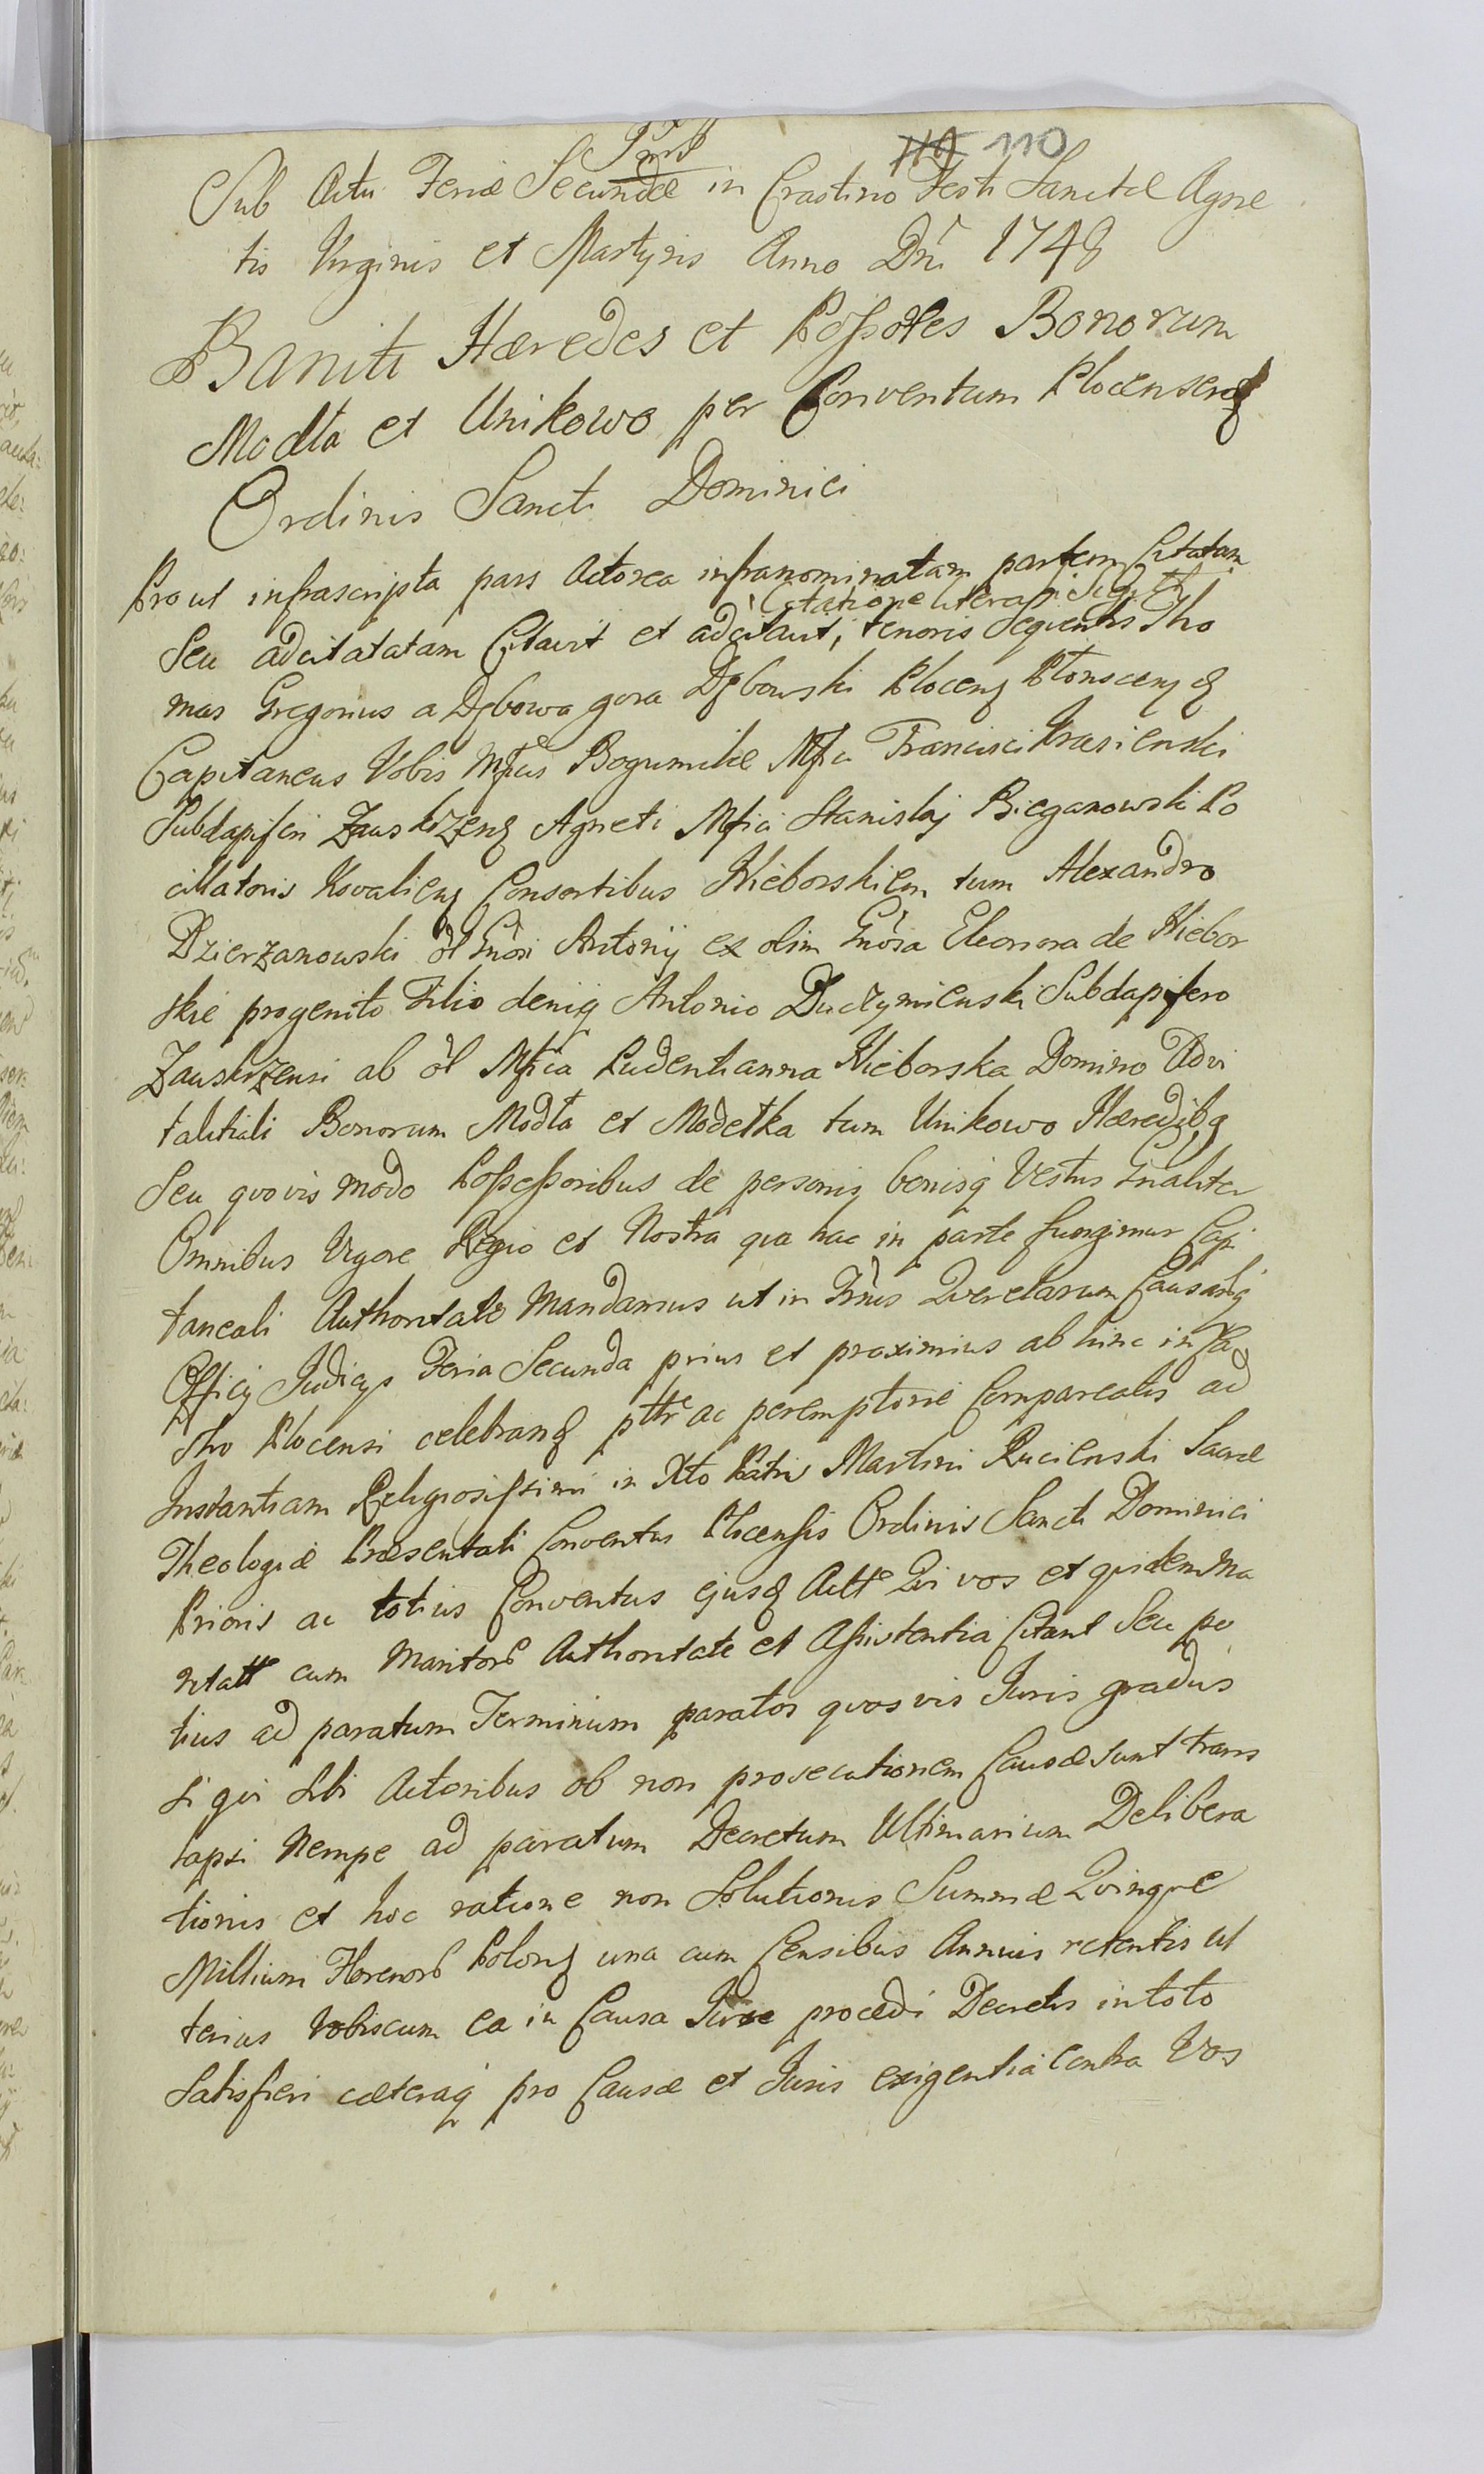 110
Sub Actu Feriæ Secundæ in Crastino Festi Sanctæ Agne
tis Virginis et Martyris Anno Dni 1748
Baniti Hæredes et Possores Bonorum
Modła et Unikowo per Conventum Plocensem
Ordinis Sancti Dominici
Prout infrascripta pars Actorea infranominatam partem Citatam
Citatione literali
Seu adcitatatam Citavit et adcitavit, tenoris Sequentis Tho
mas Gregorius a Dębowa gora Dębowski Plocenq Płonscenq q
Capitaneus Vobis Mficis Bogumilæ Mfci Francisci Krasienski
Subdapiferi Zauskrzenq Agneti Mfici Stanislaj Bieganowski Po
cillatoris Kovalienq Consortibus Kieborskiem tum Alexandro
Dzierzanowski ol Gnosi Antonij ex olim Gnosa Eleonora de Kiebor
skie progenito Filio deniq Antonio Duczymienski Subdapifero
Zauskrzensi ab ol Mfica Pudentianna Kieborska Domino Advi
talitiali Bonorum Modła et Modełka tum Unikowo Hæredibq
Seu quovis modo Possessoribus de personis bonisq Vestris Gnaliter
Omnibus Vigore Regio et Nostra qua hac in parte fungimur Capi
taneali Authoritate Mandamus ut in Trnis Querelarum Causarq
Officij Judicijs Feria Secunda prius et proximius ab hinc in Ca
stro Plocensi celebranq pttr ac peremptorie Compareatis ad
Instantiam Religiosissimi in Xto Patris Martini Rucienski Sacræ
Theologiæ Præsentati Conventus Plocensis Ordinis Sancti Dominici
Prioris ac totius Conventus ejusq Actt Qui vos et quidem Ma
ritatt cum Maritorb Authoritate et Assistentia Citant Seu po
tius ad paratum Terminum paratos quosvis Juris gradus
si qui Sibi Actoribus ob non prosecutionem Causæ sunt trans
lapsi Nempe ad paratum Decretum Ultimarium Delibera
tionis et hoc ratione non Solutionis Summæ Quinque
Millium Florenorb Polonq una cum Censibus Annuis retentis ul
terius Vobiscum ea in Causa Jure procedi Decretis in toto
Satisfieri cæteraq pro Causæ et Juris exigentia Contra Vos